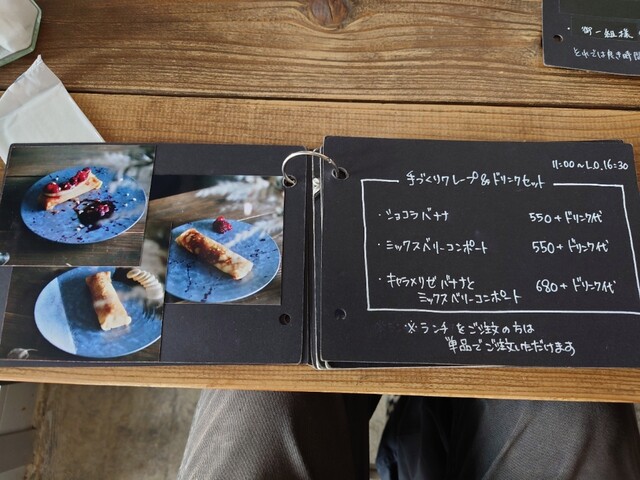 11:00〜L.O.16:30
手づくりクレープ&ドリンクセット
・ショコラバナナ 550+ドリンク代
・ミックスベリーコンポート 550+ドリンク代
・キャラメリゼバナナと 680+ドリンク代
ミックスベリーコンポート
※ランチをご注文の方は
単品でご注文いただけます
・御一組様